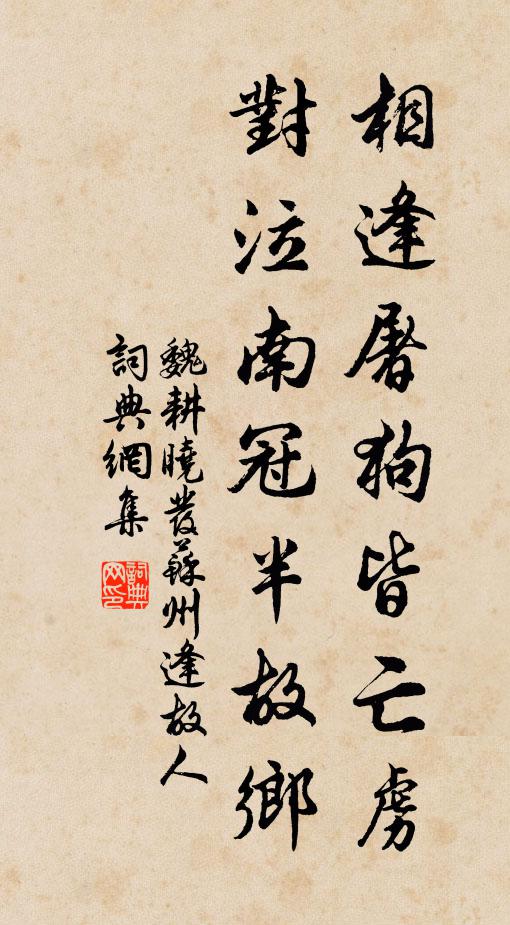 相逢屠狗皆亡虜
對泣南冠半故鄉
魏耕曉發蘇州逢故人
詞典網集
詞典网印